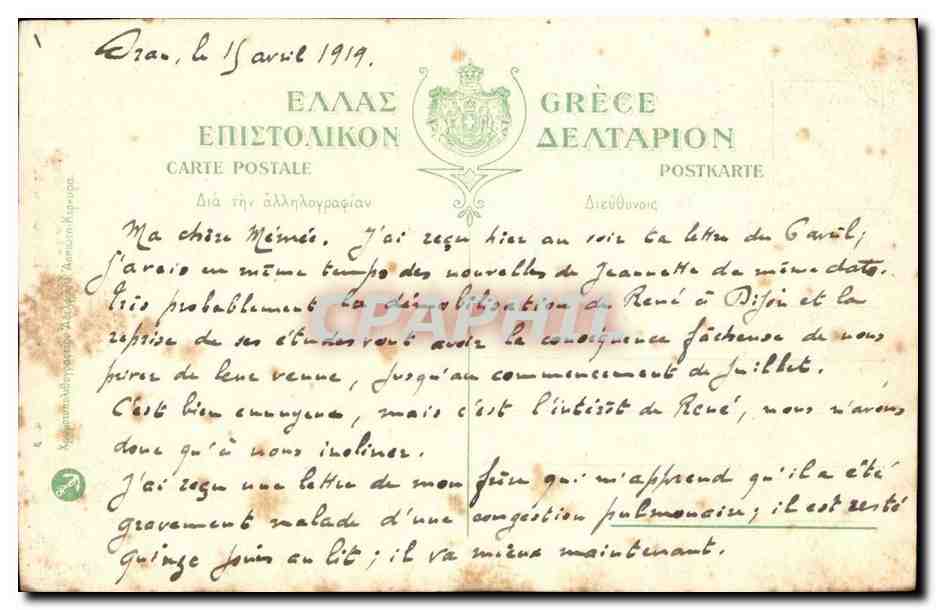 Oran, le 15 avril 1919.
ΕΛΛΑΣ GRÈCE
ΕΠΙΣΤΟΛΙΚΟΝ ΔΕΛΤΑΡΙΟΝ
CARTE POSTALE POSTKARTE
Διὰ τὴν ἀλληλογραφίαν Διεύθυνσις
Ma chère Mémée. J'ai reçu hier au soir ta lettre du 6 avril;
j'avais en même temps des nouvelles de Jeannette de même date.
Très probablement la démobilisation de René à Dijon et la
reprise de ses études vont avoir la conséquence fâcheuse de nous
priver de leur venue, jusqu'au commencement de Juillet.
C'est bien ennuyeux, mais c'est l'intérêt de René, nous n'avons
donc qu'à nous incliner.
J'ai reçu une lettre de mon frère qui m'apprend qu'il a été
gravement malade d'une congestion pulmonaire; il est resté
quinze jours au lit; il va mieux maintenant.
CPAPHIL